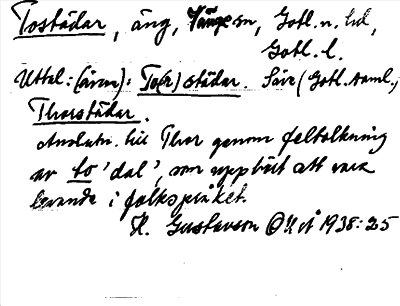 Tostädar, äng, Vänge sn, Gotl. n. hd,
Gotl. l.
Uttal: (även): To(r)städar. Säve (Gotl. saml.)
Thorstädar.
Anslutn. till Thor genom feltolkning
av to 'dal', som upphört att vara
levande i folkspråket.
H. Gustavson 1938: 25